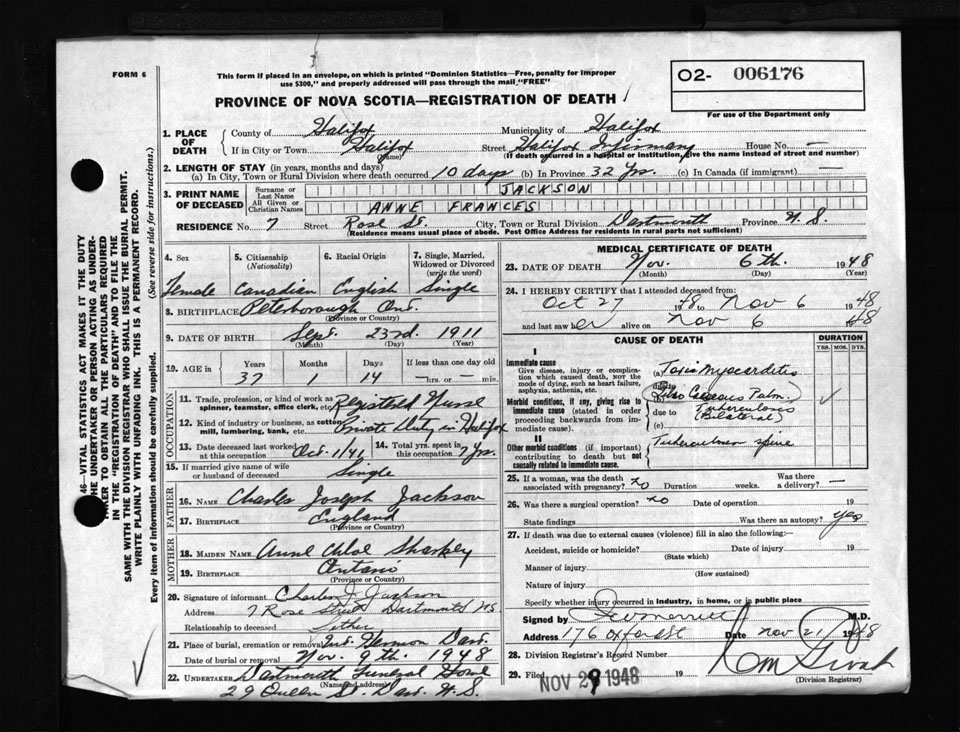 FORM 6
This form if placed in an envelope, on which is printed "Dominion Statistics—Free, penalty for improper
use $300," and properly addressed will pass through the mail "FREE"
O2- 006176
For use of the Department only
PROVINCE OF NOVA SCOTIA—REGISTRATION OF DEATH
1. PLACE OF DEATH
County of Halifax Municipality of Halifax
If in City or Town Halifax (Name) Street Halifax Infirmary House No. —
(If death occurred in a hospital or institution, give the name instead of street and number)
2. LENGTH OF STAY (in years, months and days)
(a) In City, Town or Rural Division where death occurred 10 days (b) In Province 32 Yrs. (c) In Canada (if immigrant)
3. PRINT NAME OF DECEASED
Surname or Last Name JACKSON
All Given or Christian Names ANNE FRANCES
RESIDENCE No. 7 Street Rose St. City, Town or Rural Division Dartmouth Province N.S.
(Residence means usual place of abode. Post Office Address for residents in rural parts not sufficient)
46—VITAL STATISTICS ACT MAKES IT THE DUTY
THE UNDERTAKER OR PERSON ACTING AS UNDER-
TAKER TO OBTAIN ALL THE PARTICULARS REQUIRED
IN THE "REGISTRATION OF DEATH" AND TO FILE THE
SAME WITH THE DIVISION REGISTRAR WHO SHALL ISSUE THE BURIAL PERMIT.
WRITE PLAINLY WITH UNFADING INK. THIS IS A PERMANENT RECORD.
Every item of information should be carefully supplied. (See reverse side for instructions.)
4. Sex Female
5. Citizenship (Nationality) Canadian
6. Racial Origin English
7. Single, Married, Widowed or Divorced (write the word) Single
8. BIRTHPLACE Peterborough Ont.
(Province or Country)
9. DATE OF BIRTH Sept. 23rd. 1911
(Month) (Day) (Year)
10. AGE in Years 37 Months 1 Days 14 If less than one day old — hrs. or — min.
OCCUPATION
11. Trade, profession, or kind of work as spinner, teamster, office clerk, etc. Registered Nurse
12. Kind of industry or business, as cotton mill, lumbering, bank, etc. Private Duty in Halifax
13. Date deceased last worked at this occupation Oct. 1/41
14. Total yrs. spent in this occupation 7 yrs.
15. If married give name of wife or husband of deceased Single
FATHER
16. NAME Charles Joseph Jackson
17. BIRTHPLACE England
(Province or Country)
MOTHER
18. MAIDEN NAME Anne Chloe Sharkey
19. BIRTHPLACE Ontario
(Province or Country)
20. Signature of informant Charles J. Jackson
Address 7 Rose Street Dartmouth NS
Relationship to deceased Father
21. Place of burial, cremation or removal Mt. Hermon Dart.
Date of burial or removal Nov. 9th. 1948
22. UNDERTAKER Dartmouth Funeral Home
(Name and Address)
29 Queen St. Dart. N.S.
MEDICAL CERTIFICATE OF DEATH
23. DATE OF DEATH Nov. 6th. 1948
(Month) (Day) (Year)
24. I HEREBY CERTIFY that I attended deceased from:
Oct 27 1948 to Nov 6 1948
and last saw her alive on Nov 6 1948
CAUSE OF DEATH
DURATION
YRS. MOS. DYS.
I
Immediate cause
Give disease, injury or complication which caused death, nor the mode of dying, such as heart failure, asphyxia, asthenia, etc.
(a) Toxic Myocarditis
due to
Morbid conditions, if any, giving rise to immediate cause (stated in order proceeding backwards from immediate cause).
(b) Fibro Caseous Pulm.
due to Tuberculosis
(Bilateral)
II
Other morbid conditions (if important) contributing to death but not causally related to immediate cause.
Tuberculous spine
25. If a woman, was the death associated with pregnancy? No Duration weeks. Was there a delivery? —
26. Was there a surgical operation? No Date of operation 19
State findings Was there an autopsy? Yes
27. If death was due to external causes (violence) fill in also the following:—
Accident, suicide or homicide? Date of injury 19
(State which)
Manner of injury
(How sustained)
Nature of injury
Specify whether injury occurred in industry, in home, or in public place
Signed by M.D.
Address 176 Oxford St Date Nov 21 1948
28. Division Registrar's Record Number
29. Filed NOV 29 1948 19
(Division Registrar)